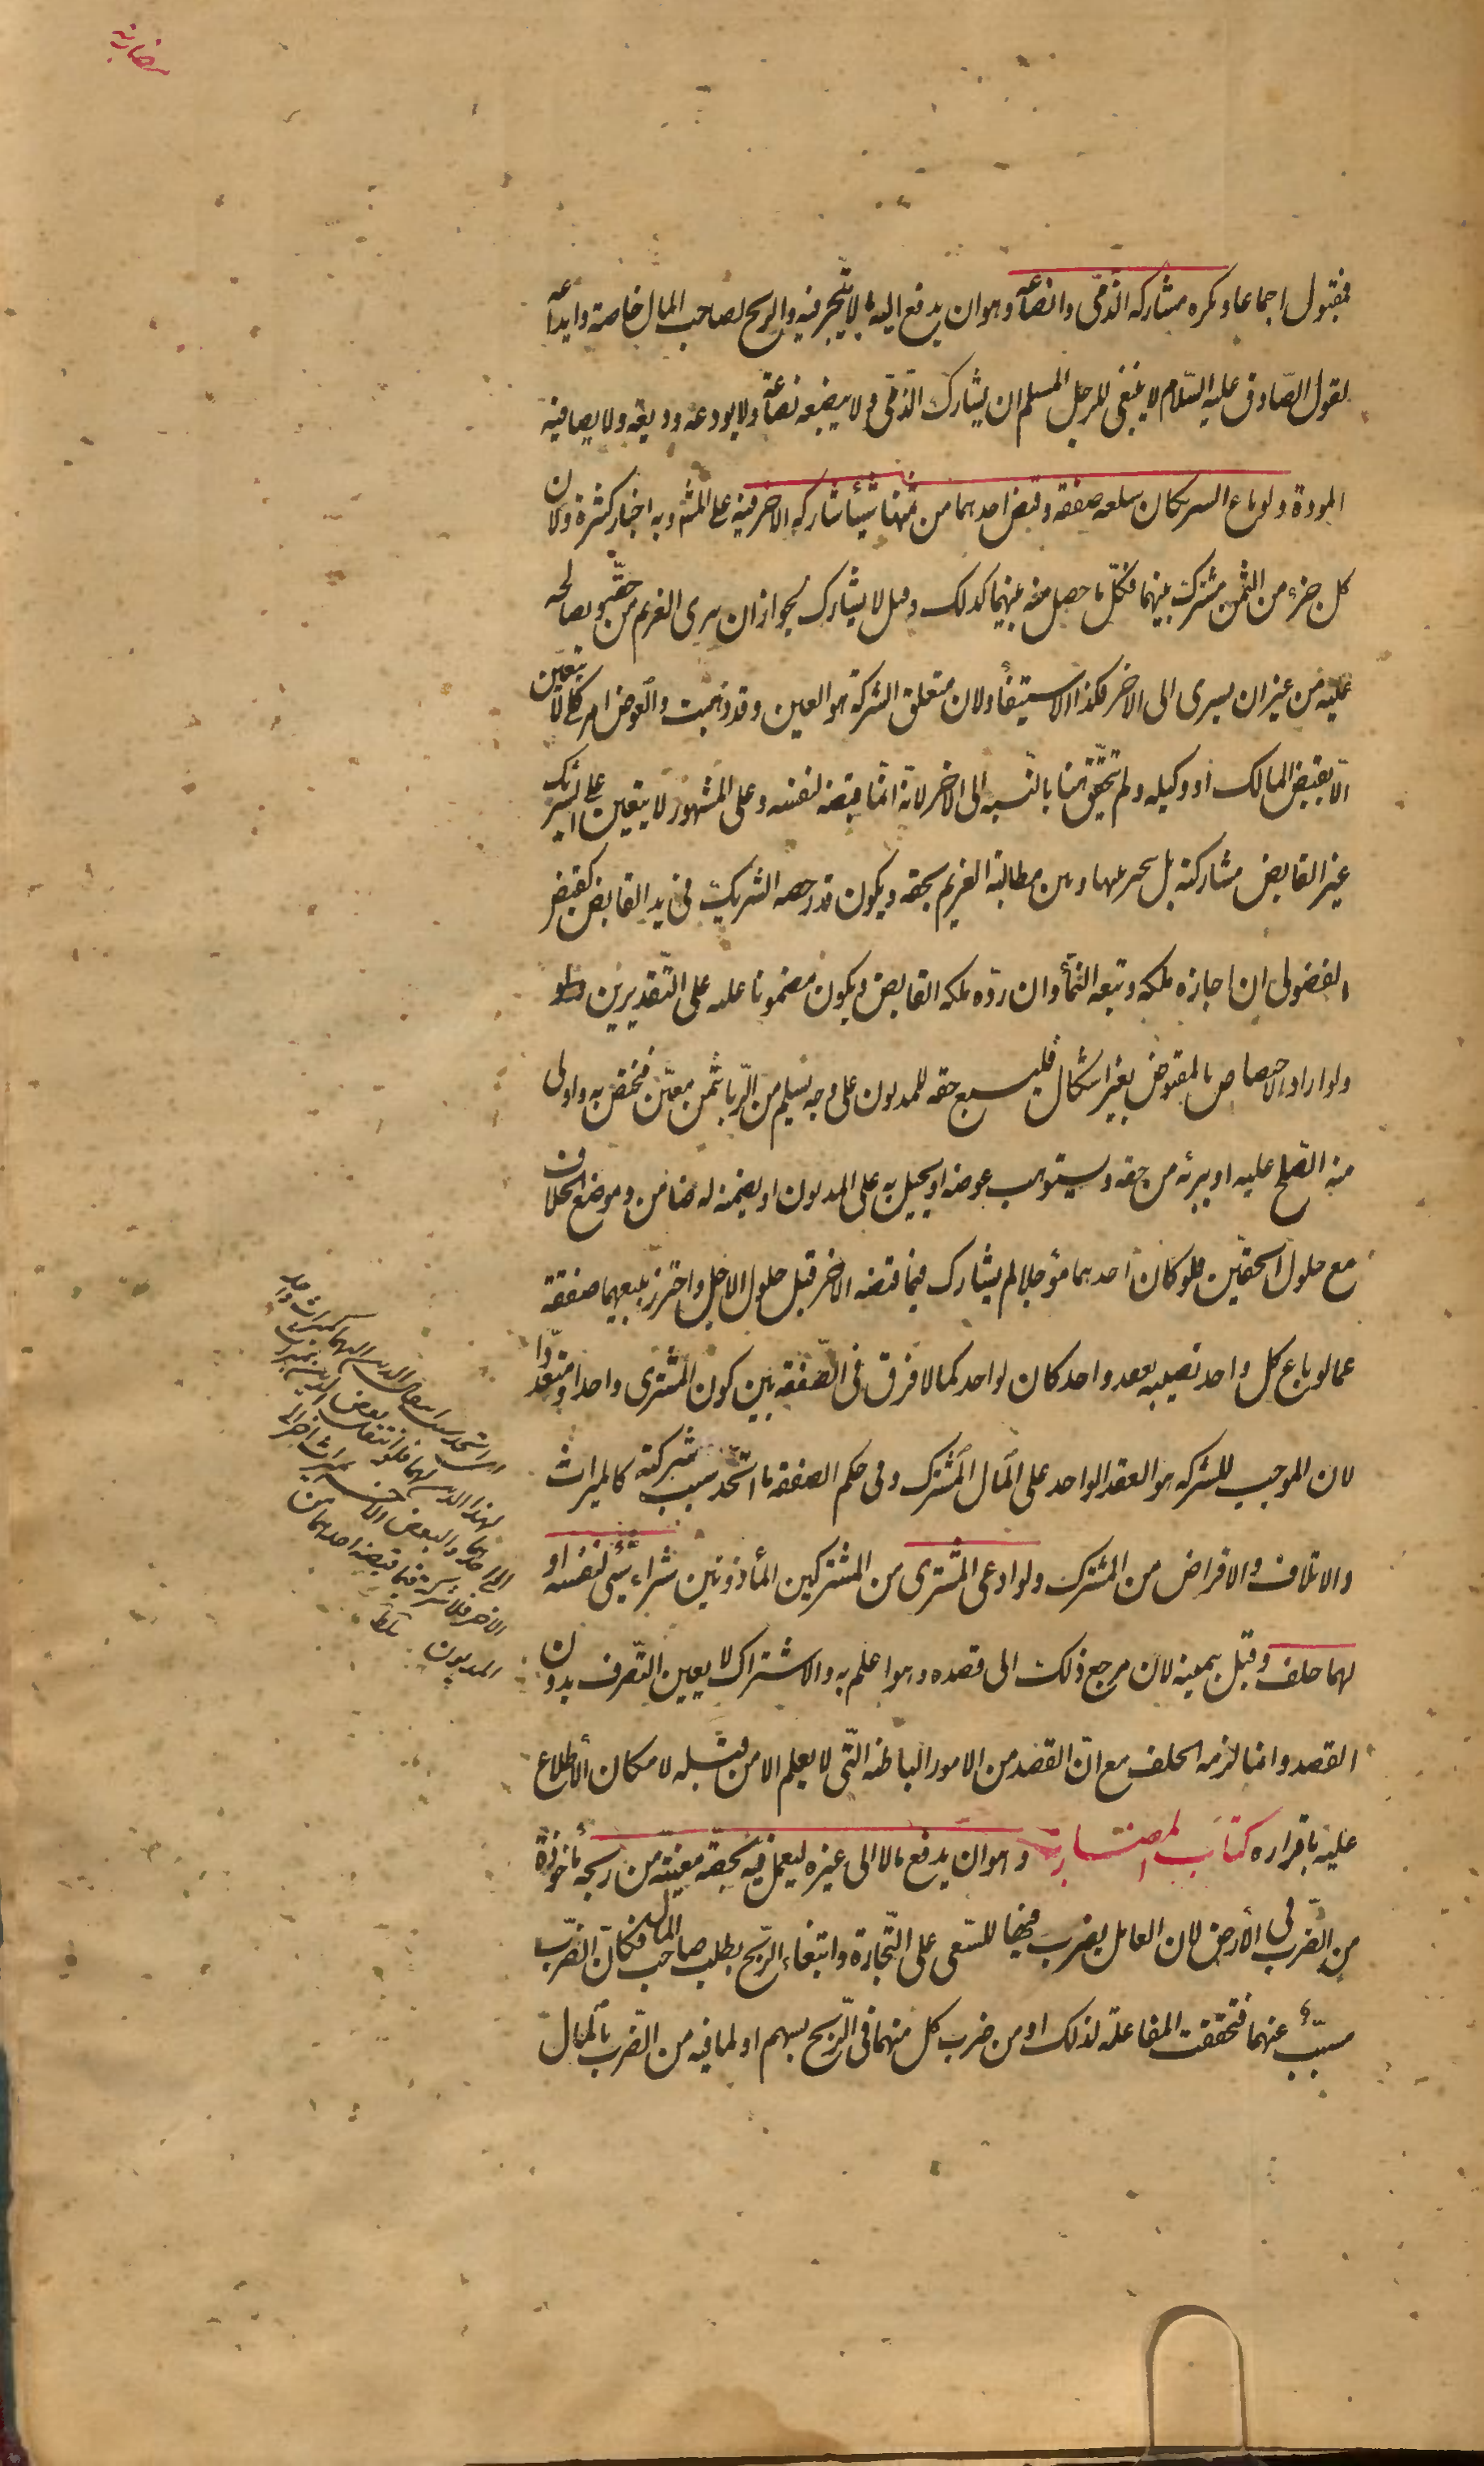 مضاربه
فمقبول اجماعا ويكره مشاركه الذمّى وابضاعه وهو ان يدفع اليه مالا يتّجر فيه والربح لصاحب المال خاصة وايداعه
لقول الصّادق عليه السّلام لا ينبغى للرجل المسلم ان يشارك الذّمّى ولا يبضعه بضاعة ولا يودعه وديعة ولا يصافيه
المودة ولو باع الشريكان سلعه صفقه وقبض احدهما من ثمنها شيئا شاركه الاخر فيه على المش وبه اخبار كثيرة ولان
كل جزء من الثمن مشترك بينهما فكلّ ما حصل منه بينهما كذلك وقيل لا يشارك لجواز ان يبرى الغريم من حقّه ويصالحه
عليه من غير ان يسرى الى الاخر فكذا الاستيفاء ولان متعلق الشركة هو العين وقد ذهبت والعوض امر كلى لا يتعين
الّا بقبض المالك او وكيله ولم يتحقّق هنا بالنّسبه الى الاخر لانّه انّما قبضه لنفسه وعلى المشهور لا يتعين على الشريك
غير القابض مشاركته بل يتخير بينها وبين مطالبة الغريم بحقه ويكون قدر حصه الشريك فى يد القابض كقبض
الفضولى ان اجازه ملكه وتبعه النّماء وان ردّه ملكه القابض ويكون مضمونا عليه على التّقديرين
ولو اراد الاختصاص بالمقبوض بغير اشكال فليبع حقه للمديون على وجه يسلم من الرّبا بثمن معيّن فيختص به واولى
منه الصّلح عليه او يبرئه من حقه ويستوهب عوضه او يحيل به على المديون او يضمنه له ضامن وموضع الخلاف
مع حلول الحقّين فلو كان احدهما مؤجلا لم يشارك فيما قبضه الاخر قبل حلول الاجل واحترز ببيعهما صفقة
عما لو باع كل واحد نصيبه بعقد واحد كان لواحد كما لا فرق فى الصّفقه بين كون المشترى واحدا او متعدّدا
لان الموجب للشركه هو العقد الواحد على المال المشترك وفى حكم الصفقه ما اتّحد سبب شركته كالميراث
والاتلاف والاقراض من المشترك ولو ادعى المشترى من المشتركين المأذونين شراء شيئ لنفسه او
لهما حلف وقبل بيمينه لان مرجع ذلك الى قصده وهو اعلم به والاشتراك لا يعين التّصرف بدون
القصد وانما لزمه الحلف مع انّ القصد من الامور الباطنه التّى لا يعلم الا من قبله لامكان الاطّلاع
عليه باقراره كتاب المضاربه وهو ان يدفع مالا الى غيره ليعمل فيه بحصّه معينّه من ربحه مأخوذة
من الضّرب فى الأرض لان العامل يضرب فيها للسّعى على التّجارة وابتغاء الرّبح بطلب صاحب المال فكانّ الضّرب
مسبّب عنهما فتحققت المفاعلة لذلك او من ضرب كل منهما فى الرّبح بسهم او لما فيه من الضّرب بالمال
الاخر فلا شركة فيما قبضه احدهما من
المديون